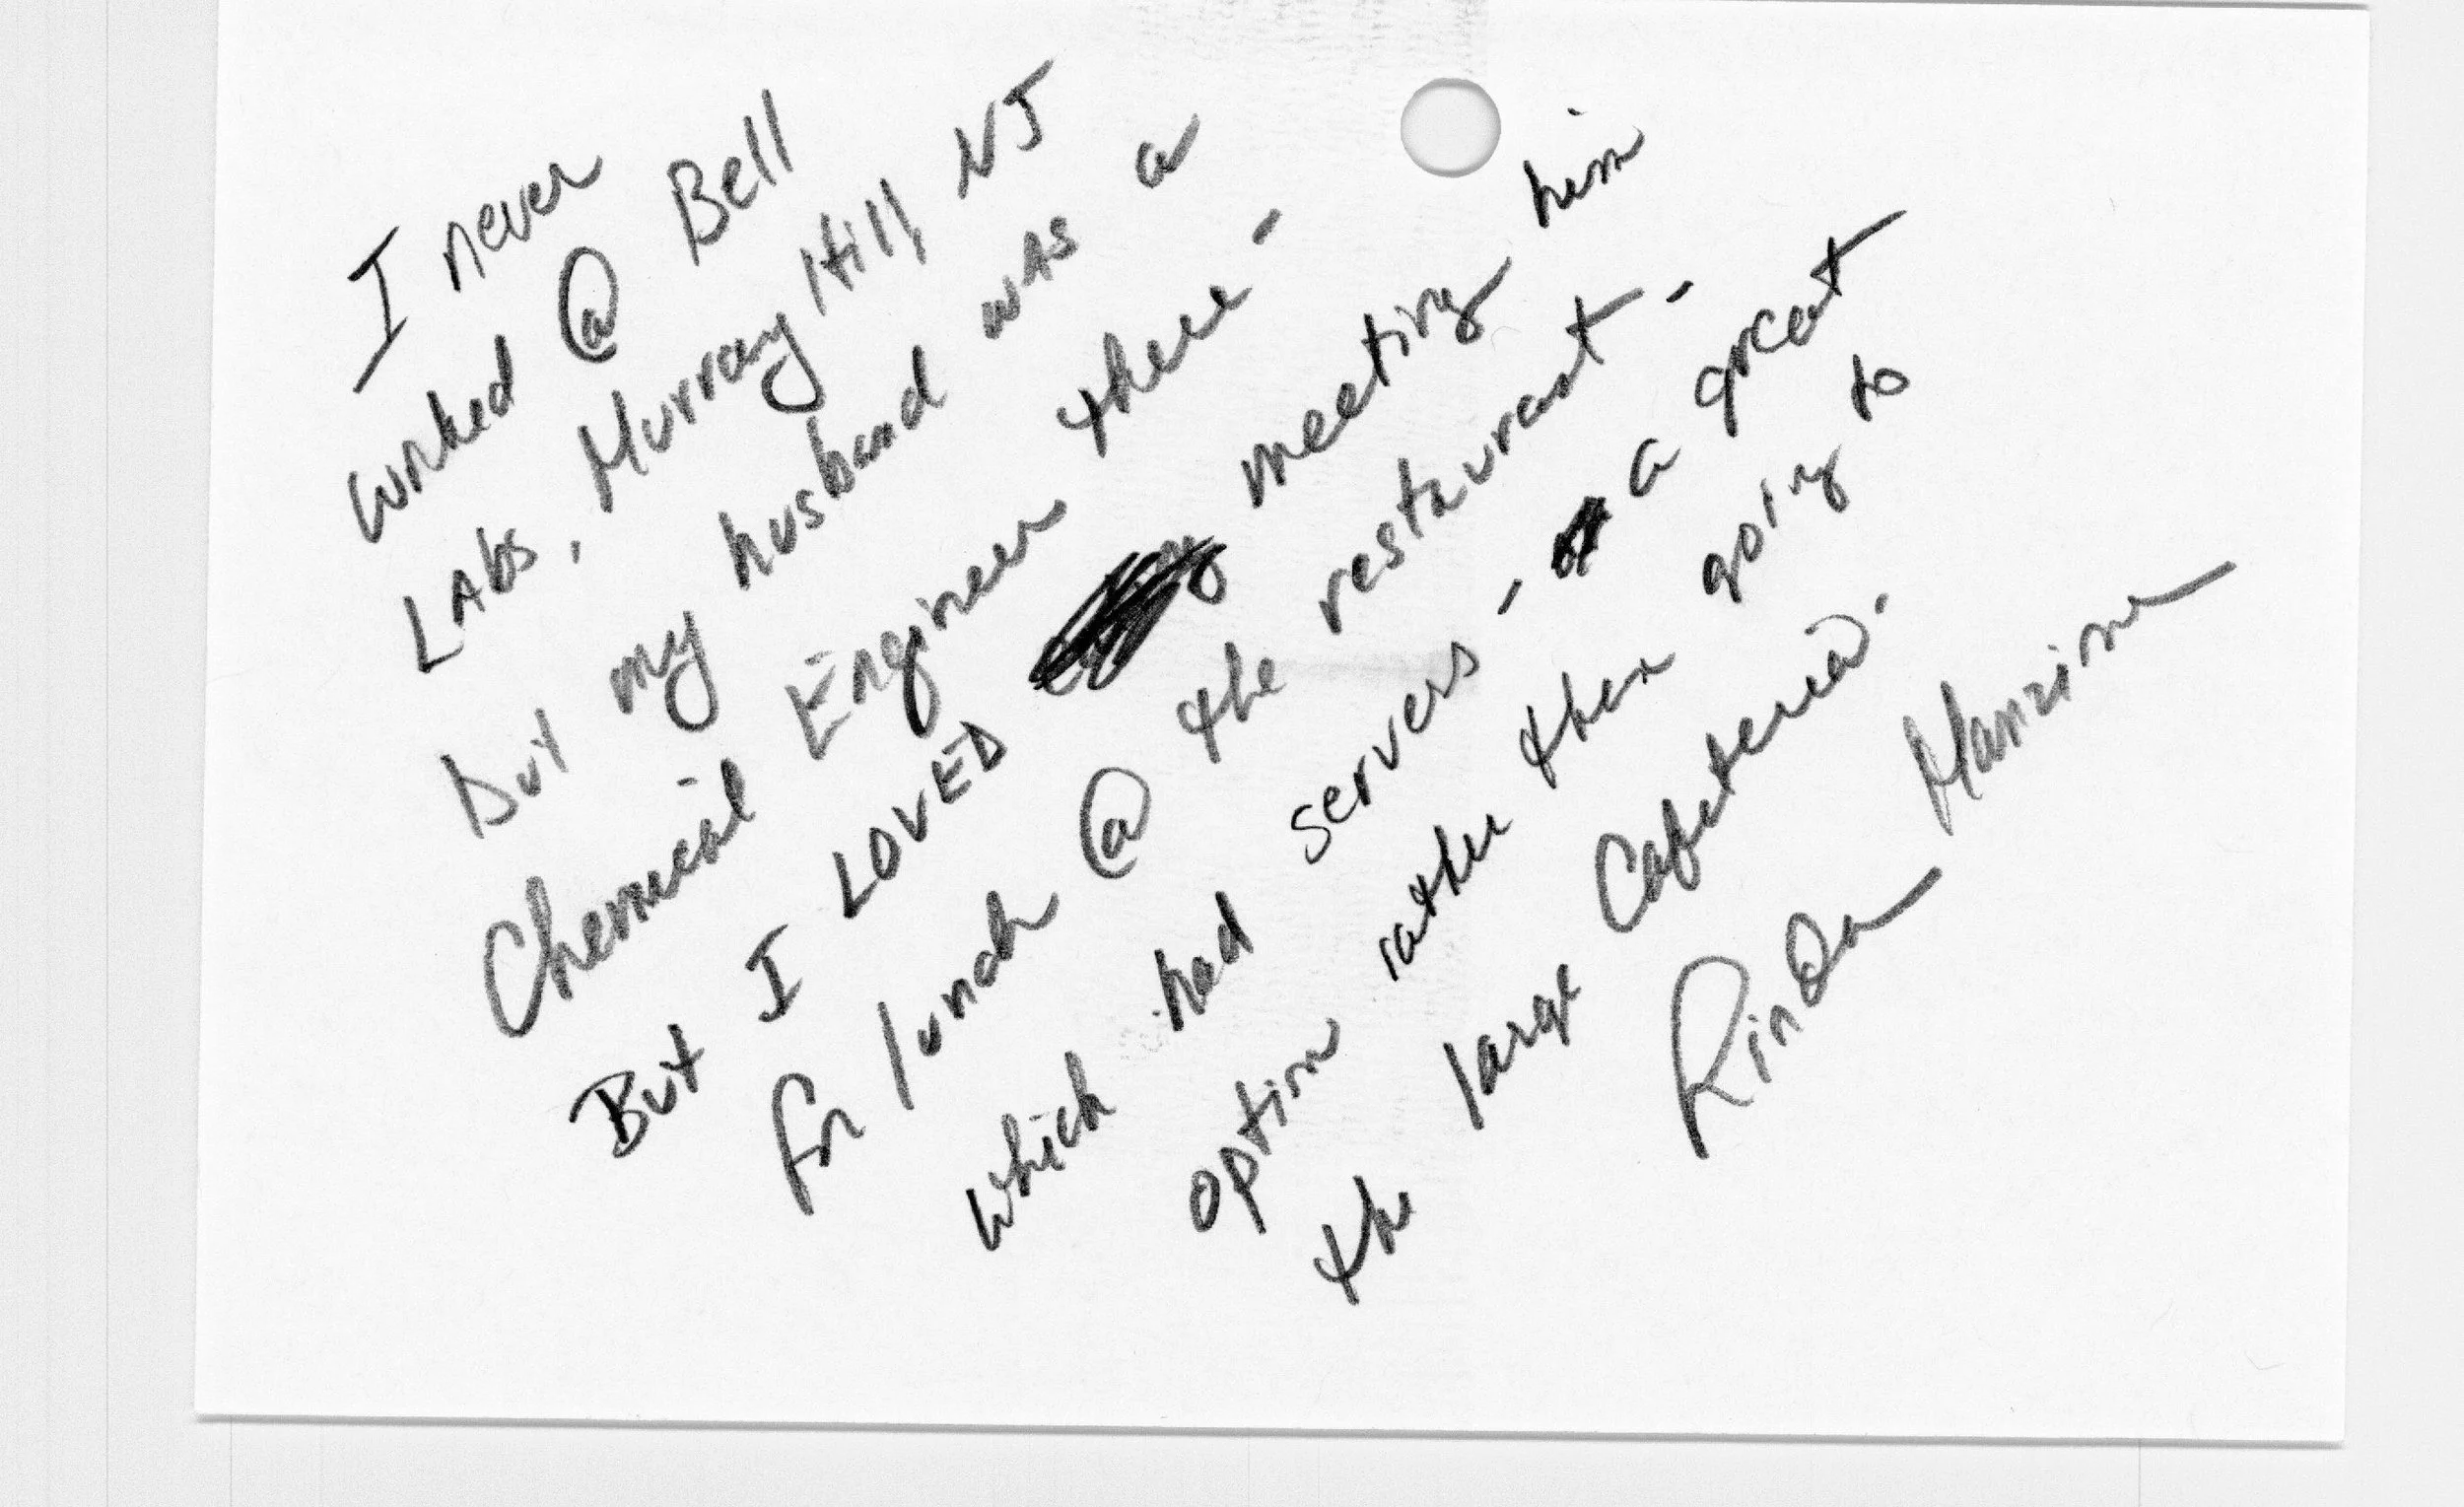 I never
worked @ Bell
LAbs, Murray Hill, NJ
but my husband was a
Chemical Engineer there -
But I LOVED meeting him
for lunch @ the restaurant -
which had servers - a great
option rather then going to
the large Cafeteria.
Rinda